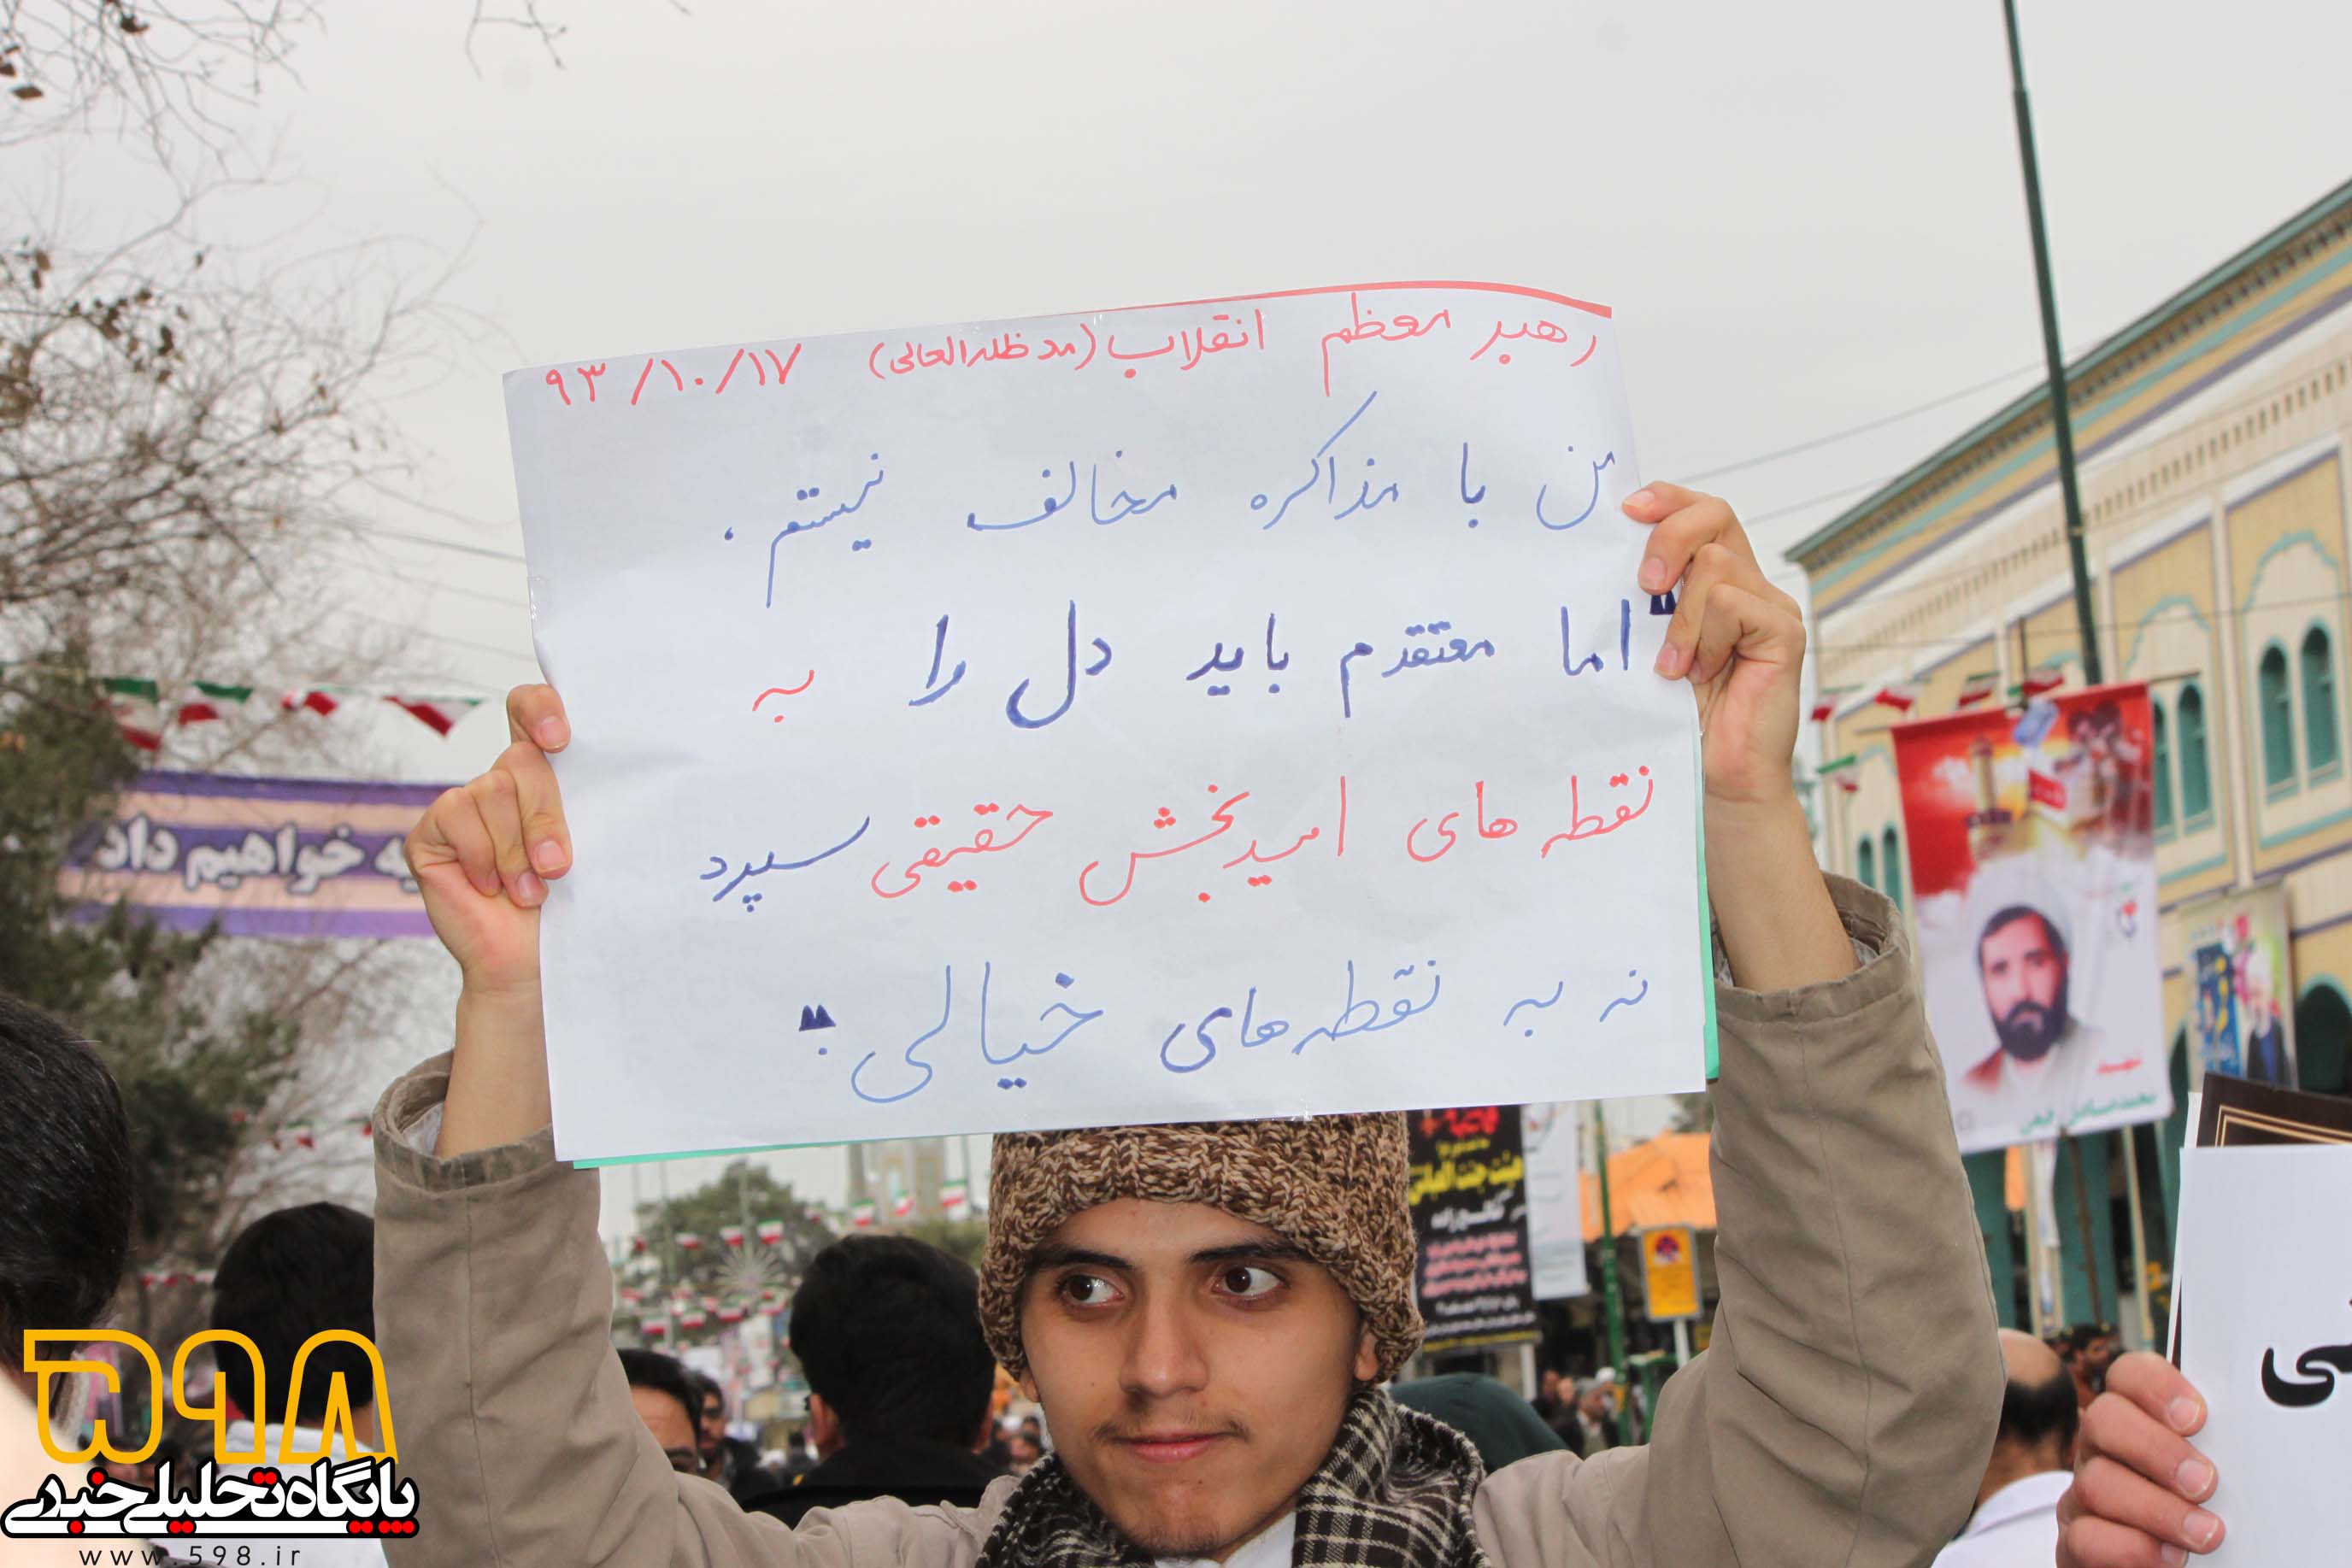 رهبر معظم انقلاب (مد ظله العالی) ۹۳/۱۰/۱۷
من با مذاکره مخالف نیستم.
"اما معتقدم باید دل را به
نقطه های امیدبخش حقیقی سپرد
نه به نقطه های خیالی."
یه خواهیم داد
هیئت جنت العباس
۵۹۸
پایگاه تحلیلی خبری
www.598.ir